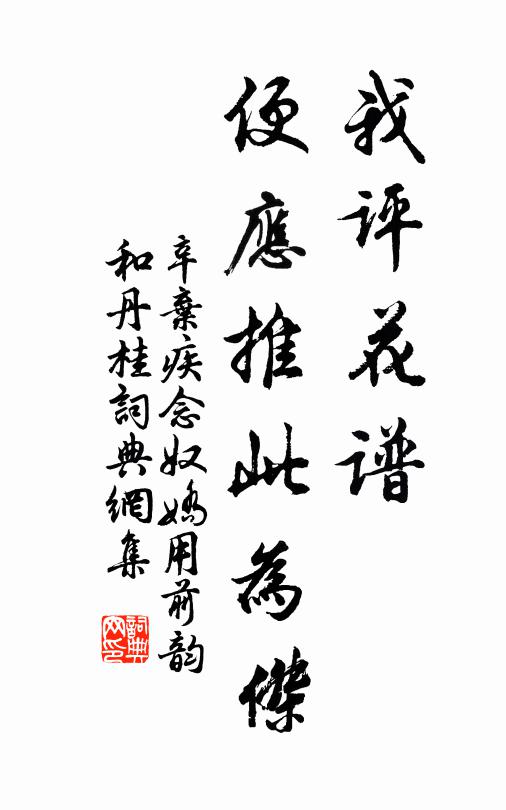 我評花谱
便應推此為傑
辛棄疾念奴嬌用前韵
和丹桂詞典網集
詞典网印